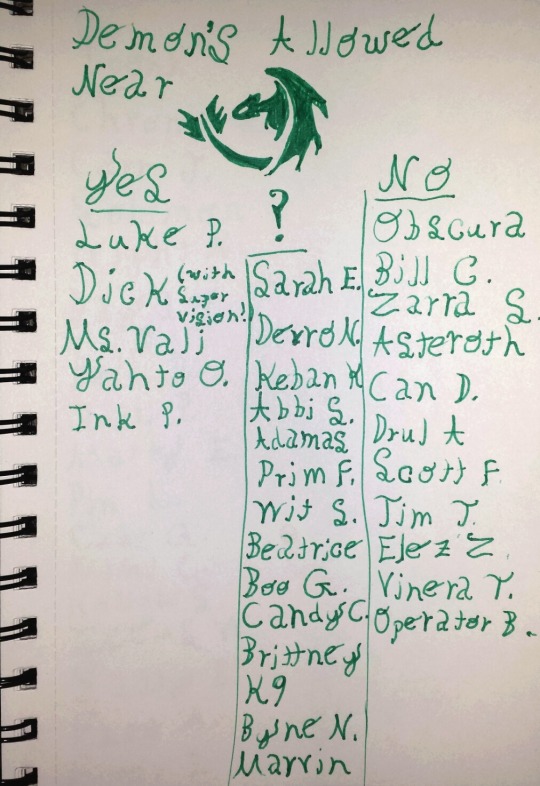 Demon's Allowed
Near
Yes
Luke P.
Dick (with
Super
Vision!)
Ms. Vali
Yahto O.
Ink P.
?
Sarah E.
Devro N.
Keban K
Abbi S.
Adamas
Prim F.
Wit S.
Beatrice
Boo G.
Candy C.
Brittney
K9
Byne N.
Marvin
No
Obscura
Bill C.
Zarra S.
Asteroth
Can D.
Drul A
Scott F
Tim T.
Elez Z.
Vinera T.
Operator B.